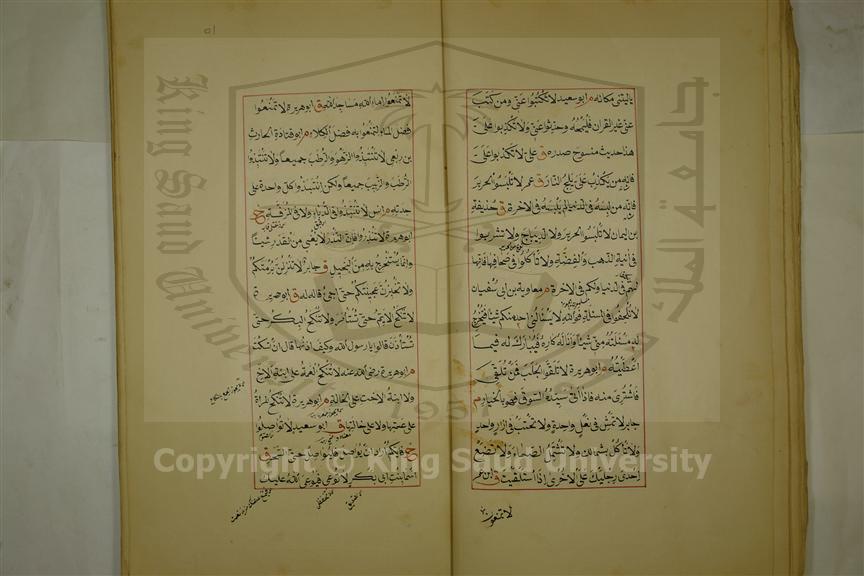 يا ليتني مكانه م ابو سعيد لا تكتبوا عني ومن كتب
عني غير القران فليمحه وحدثوا عني ولا تكذبوا علي
هذا حديث منسوخ صدره ق علي لا تكذبوا علي
فانه من يكذب علي يلج النار ق عمر لا تلبسوا الحرير
فانه من لبسه في الدنيا لم يلبسه في الاخرة ق حذيفة
بن اليمان لا تلبسوا الحرير ولا الديباج ولا تشربوا
في انية الذهب والفضة ولا تاكلوا في صحافها فانها
لهم في الدنيا ولكم في الاخرة م معاوية بن ابي سفيان
لا تلحفوا في المسئلة فوالله لا يسئلني احد منكم شيئا فتخرج
له مسئلته مني شيئا وانا له كاره فيبارك له فيما
اعطيته م ابو هريرة لا تلقوا الجلب فمن تلقى
فاشترى منه فاذا اتى سيده السوق فهو بالخيار م
جابر لا تمش في نعل واحدة ولا تحتب في ازار واحد
ولا تاكل بشمالك ولا تشتمل الصماء ولا تضع
احدى رجليك على الاخرى اذا استلقيت ق ابن عمر
لا تمنعوا
لا تمنعوا اماء الله مساجد الله ق ابو هريرة لا تمنعوا
فضل الماء لتمنعوا به فضل الكلاء م ابو قتادة الحارث
بن ربعي لا تنتبذوا الزهو والرطب جميعا ولا تنتبذوا
الرطب والزبيب جميعا ولكن انتبذوا كل واحدة على
حدته م انس لا تنتبذوا في الدباء ولا في المزفت خ
ابو هريرة لا تنذروا فان النذر لا يغني من القدر شيئا
وانما يستخرج به من البخيل ق جابر لا تنزلن برمتكم
ولا تخبزن عجينتكم حتى اجئ قاله له ق ابو هريرة
لا تنكح الايم حتى تستامر ولا تنكح البكر حتى
تستأذن قالوا يا رسول الله وكيف اذنها قال ان تسكت
م ابو هريرة رضي الله عنه لا تنكح العمة على ابنة الاخ
ولا ابنة الاخت على الخالة م ابو هريرة لا تنكح المراة
على عمتها ولا على خالتها ق ابو سعيد لا تواصلوا
فايكم اراد ان يواصل فليواصل حتى السحر ق
اسما بنت ابي بكر لا توعي فيوعي الله عليك
جامعة الملك
King Saud University
1957
Copyright © King Saud University